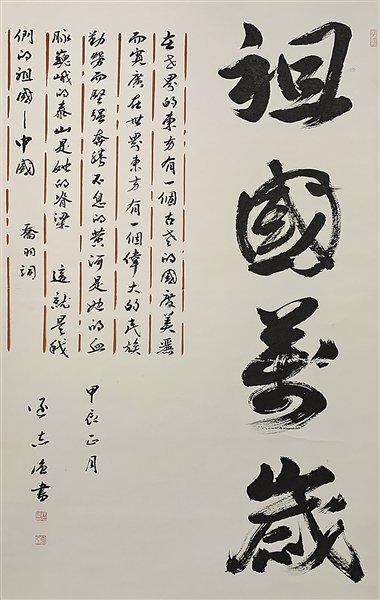 祖國萬歲
在世界的東方有一個古老的國度美麗
而寬廣在世界東方有一個偉大的民族
勤勞而堅強奔騰不息的黃河是她的血
脉巍峨的泰山是她的脊梁 這就是我
們的祖國—中國 喬羽詞
甲辰正月
志 書